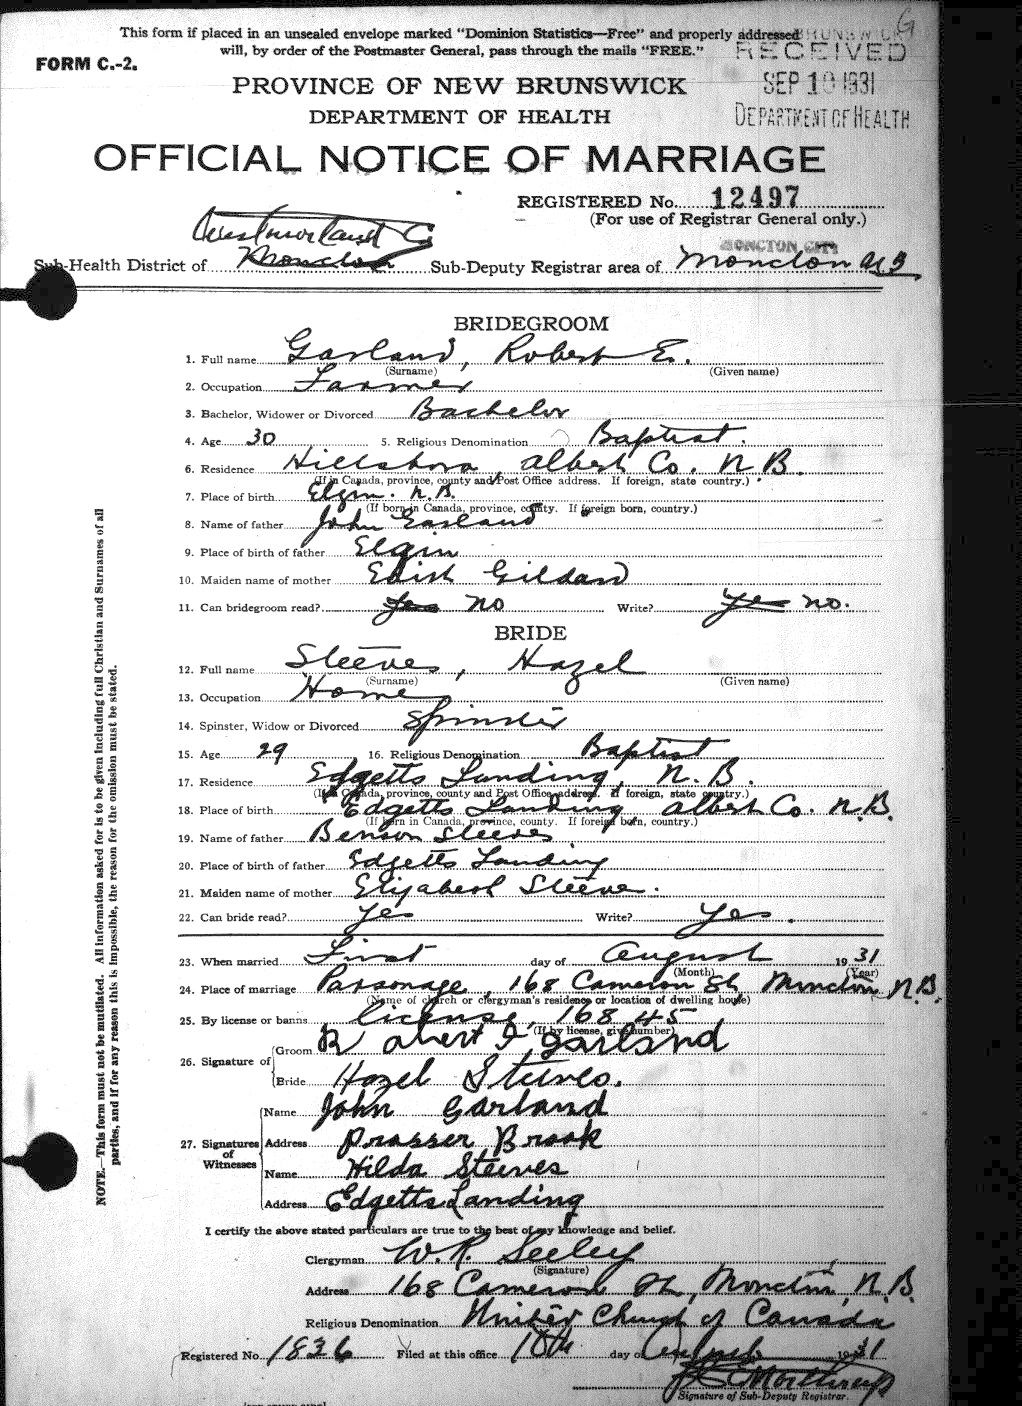 This form if placed in an unsealed envelope marked "Dominion Statistics—Free" and properly addressed
will, by order of the Postmaster General, pass through the mails "FREE."
RECEIVED
FORM C.-2.
SEP 10 1931
PROVINCE OF NEW BRUNSWICK
DEPARTMENT OF HEALTH
DEPARTMENT OF HEALTH
OFFICIAL NOTICE OF MARRIAGE
REGISTERED No. 12497
(For use of Registrar General only.)
Westmorland Co
MONCTON CITY
Sub-Health District of Moncton Sub-Deputy Registrar area of Moncton N B
BRIDEGROOM
1. Full name Garland, Robert E.
(Surname) (Given name)
2. Occupation Farmer
3. Bachelor, Widower or Divorced Bachelor
4. Age 30 5. Religious Denomination Baptist.
6. Residence Hillsboro, Albert Co. N B.
(If in Canada, province, county and Post Office address. If foreign, state country.)
7. Place of birth Elgin. N.B.
(If born in Canada, province, county. If foreign born, country.)
8. Name of father John Garland
9. Place of birth of father Elgin
10. Maiden name of mother Edith Gildard
11. Can bridegroom read? Yes no Write? Yes no.
BRIDE
12. Full name Steeves, Hazel
(Surname) (Given name)
13. Occupation Home
14. Spinster, Widow or Divorced Spinster
15. Age 29 16. Religious Denomination Baptist
17. Residence Edgetts Landing, N. B.
(If in Canada, province, county and Post Office address. If foreign, state country.)
18. Place of birth Edgetts Landing Albert Co. N.B.
(If born in Canada, province, county. If foreign born, country.)
19. Name of father Benson Steeves
20. Place of birth of father Edgetts Landing
21. Maiden name of mother Elizabeth Steeve.
22. Can bride read? Yes Write? Yes.
23. When married First day of August 1931
(Month) (Year)
24. Place of marriage Parsonage, 168 Cameron St Moncton N.B.
(Name of church or clergyman's residence or location of dwelling house)
25. By license or banns license, 16845
(If by license, give number)
26. Signature of Groom Robert E Garland
Bride Hazel Steeves.
27. Signatures of Witnesses Name John Garland
Address Prosser Brook
Name Hilda Steeves
Address Edgetts Landing
I certify the above stated particulars are true to the best of my knowledge and belief.
Clergyman W. R. Seeley
(Signature)
Address 168 Cameron St, Moncton, N.B.
Religious Denomination United Church of Canada
Registered No. 1836 Filed at this office 10th day of 1931
Signature of Sub-Deputy Registrar.
NOTE.—This form must not be mutilated. All information asked for is to be given including full Christian and Surnames of all
parties, and if for any reason this is impossible, the reason for the omission must be stated.